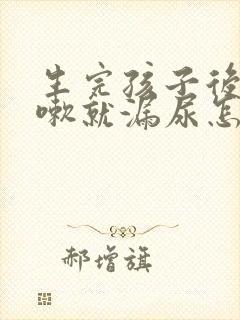 生完孩子後
嗽就漏尿怎
郝增旗